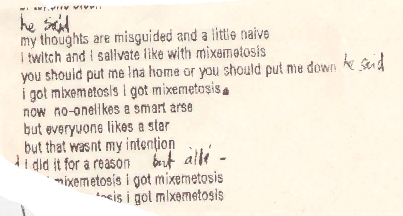 he said
my thoughts are misguided and a little naive
i twitch and i salivate like with mixemetosis
you should put me ina home or you should put me down he said
i got mixemetosis i got mixemetosis.
now no-onelikes a smart arse
but everyuone likes a star
but that wasnt my intention
i did it for a reason but
mixemetosis i got mixemetosis
i got mixemetosis